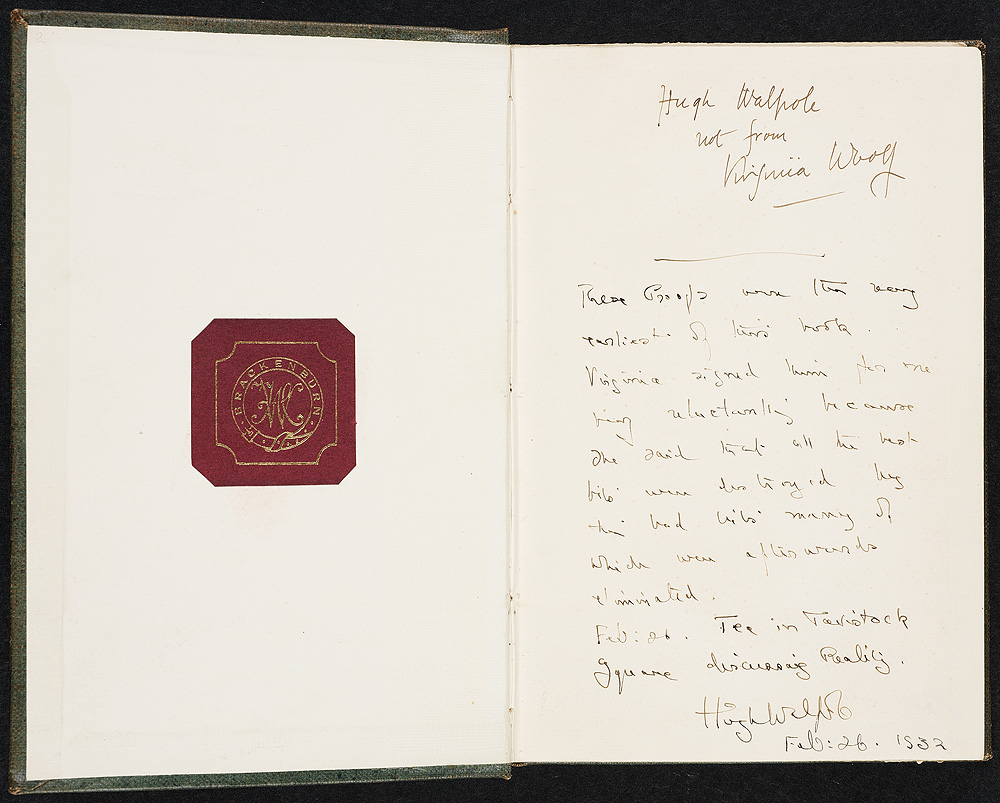 BRACKENBURN
Hugh Walpole
not from
Virginia Woolf
These Proofs were the very
earliest of this book.
Virginia signed them for me
very reluctantly because
she said that all the best
bits were destroyed by
the bad bits many of
which were afterwards
eliminated.
Feb: 26. Tea in Tavistock
Square discussing Reality.
Hugh Walpole
Feb: 26. 1932